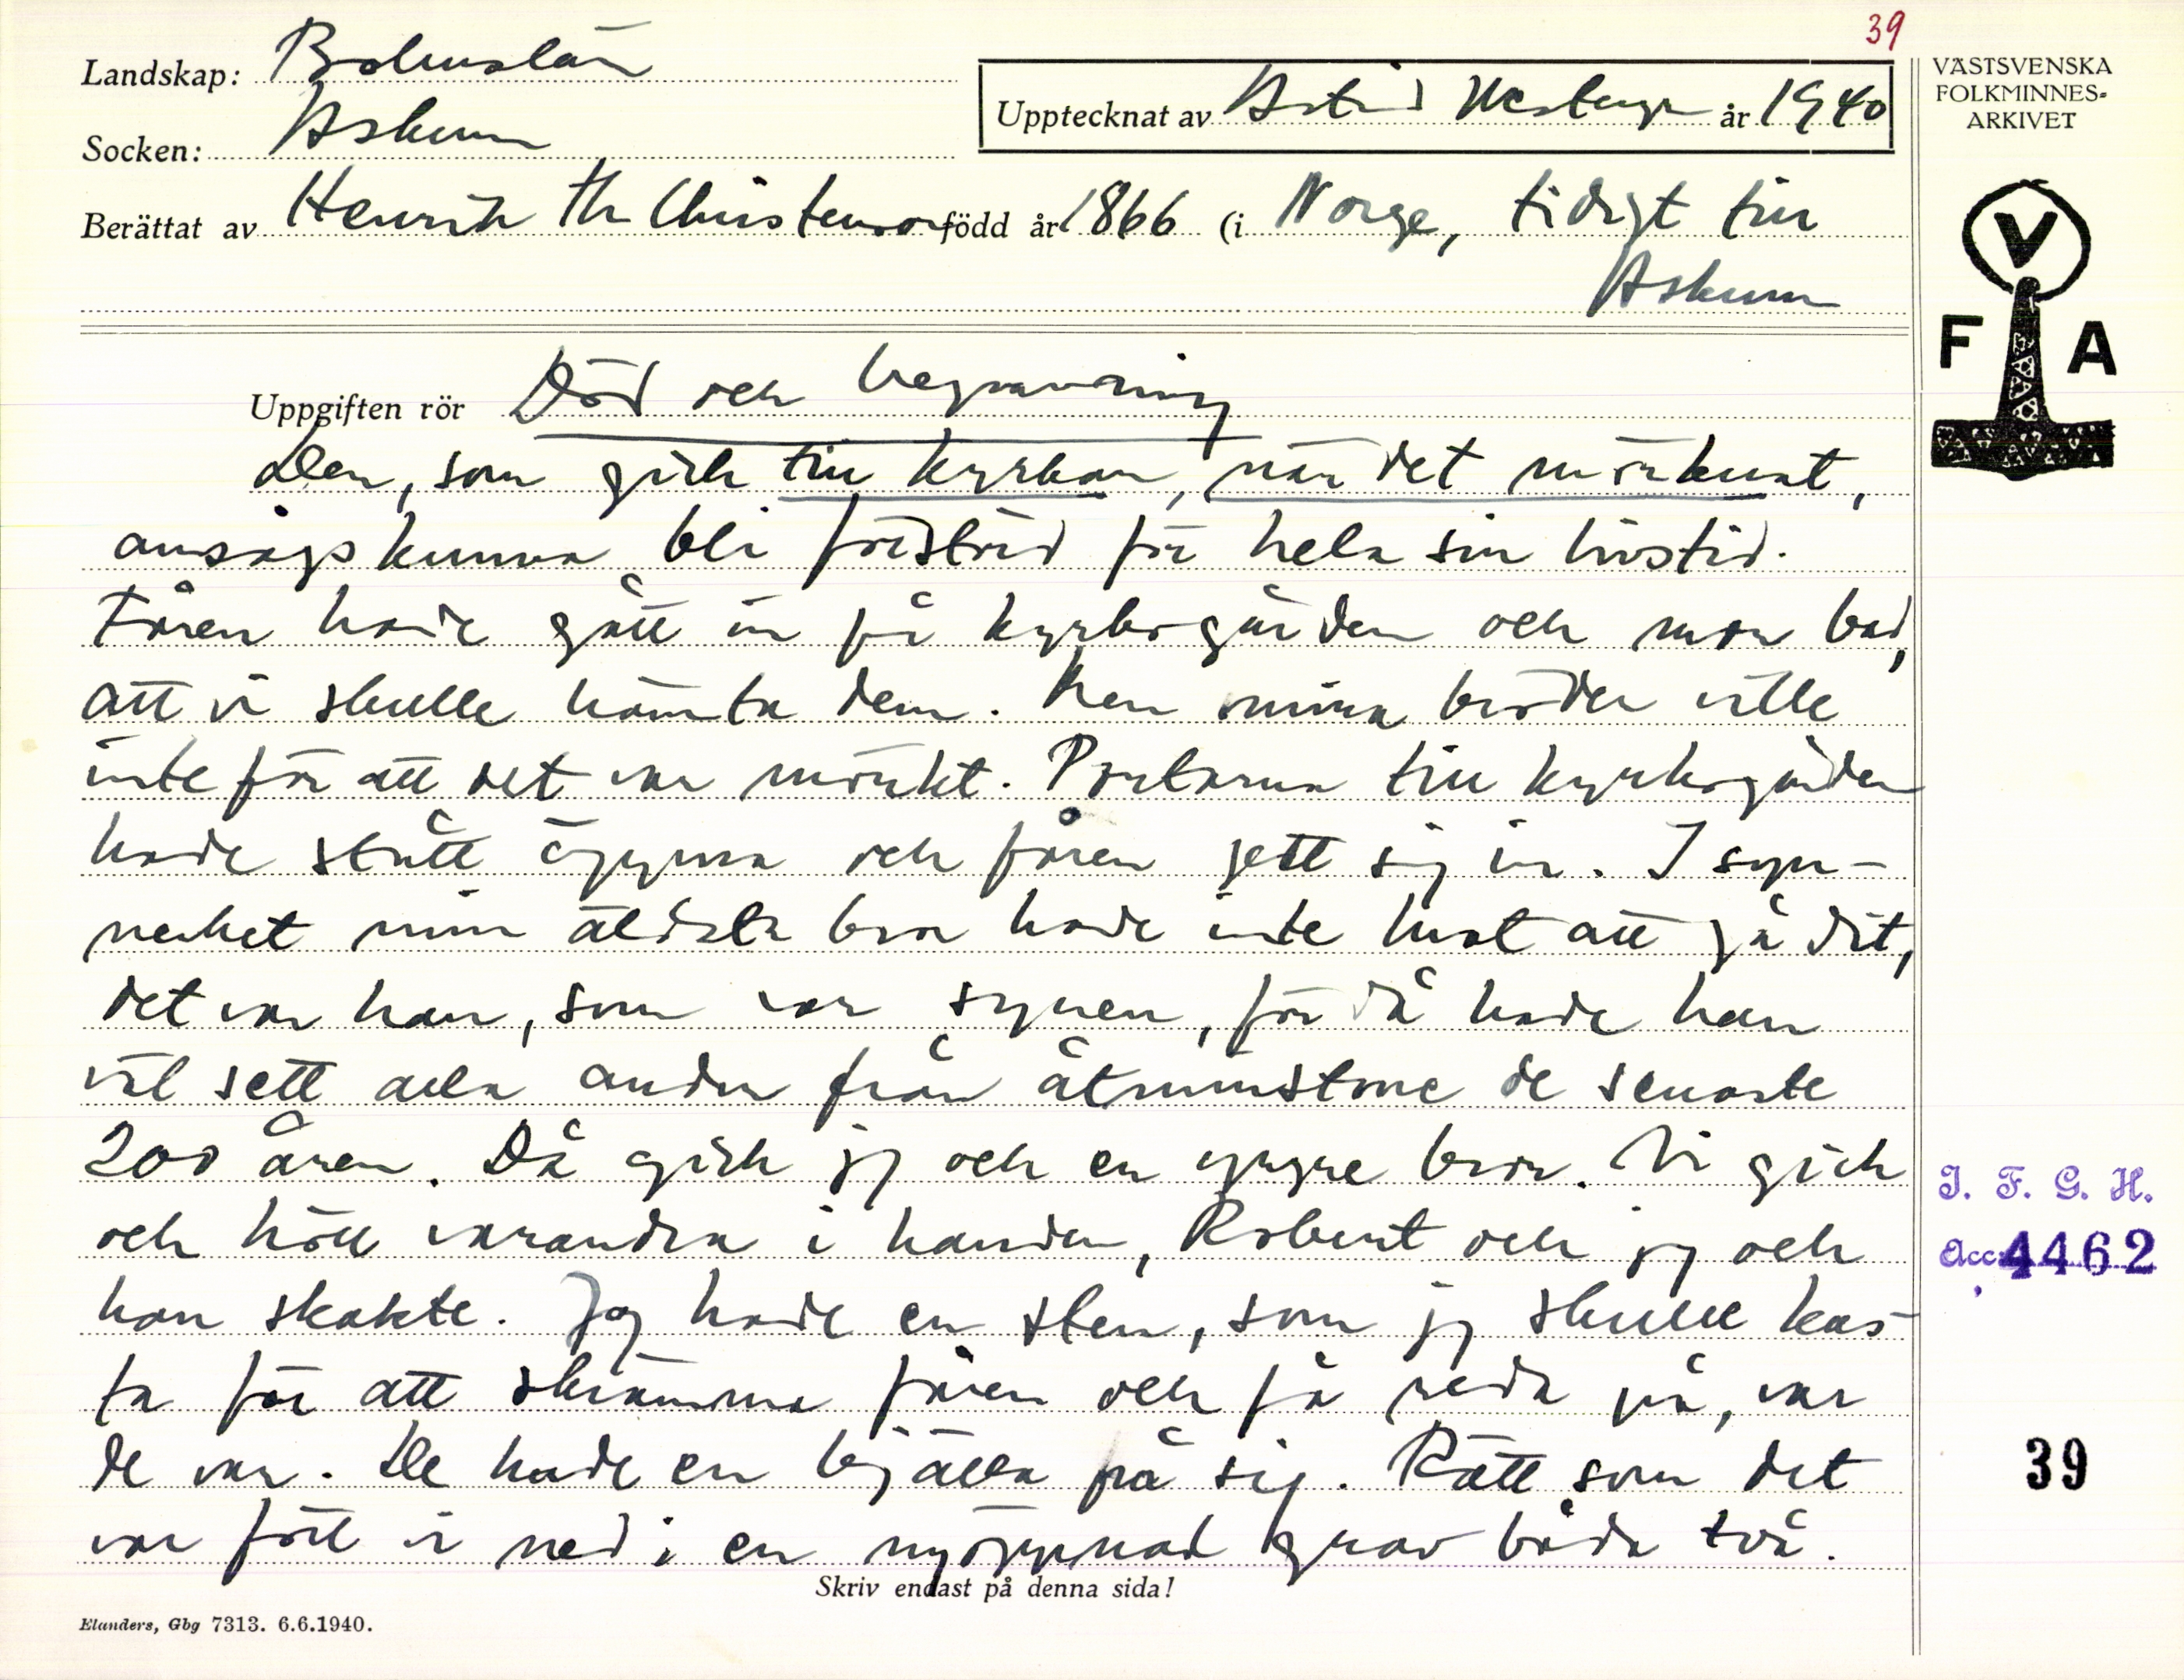 39
Landskap: Bohuslän
Socken: Askum
Upptecknat av Astrid år 1940
Berättat av Henrik Th Christenson född år 1866 (i Norge, tidigt till
Askum
VÄSTSVENSKA
FOLKMINNES-
ARKIVET
V
F A
Uppgiften rör Död och begravning
Den, som gick till kyrkan, när det mörknat,
ansågs kunna bli förstörd för hela sin livstid.
Fåren hade gått in på kyrkogården och mor bad,
att vi skulle hämta dem. Men mina bröder ville
inte för att det var mörkt. Portarna till kyrkogården
hade stått öppna och fåren gett sig in. I syn-
nerhet min äldsta bror hade inte lust att gå dit,
det var han, som var synen, för då hade han
väl sett alla andar från åtminstone de senaste
200 åren. Då gick jg och en yngre bror. Vi gick
och höll varandra i handen, Robert och jg och
han skakte. Jag hade en sten, som jg skulle kas-
ta för att skrämma fåren och få reda på, var
de var. De hade en bjälla på sig. Rätt som det
var föll vi ned i en nyöppnad grav båda två.
Skriv endast på denna sida!
Elanders, Gbg 7313. 6.6.1940.
I. F. G. H.
Acc: 4462
39